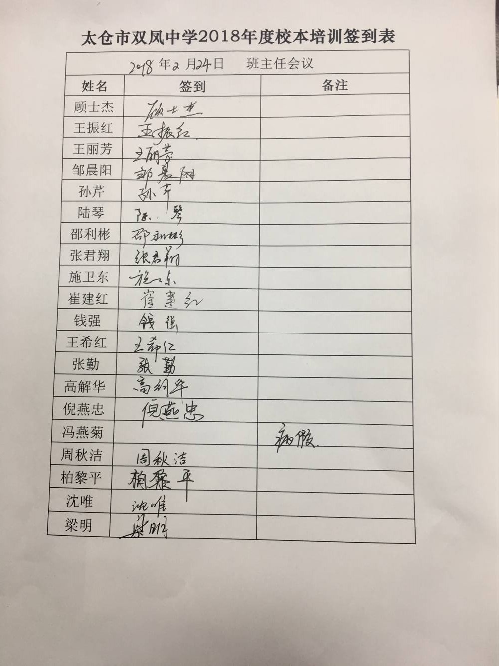 太仓市双凤中学2018年度校本培训签到表
2018年2月24日 班主任会议
姓名 签到 备注
顾士杰 顾士杰
王振红 王振红
王丽芳 王丽芳
邹晨阳 邹晨阳
孙芹 孙芹
陆琴 陆琴
邵利彬 邵利彬
张君翔 张君翔
施卫东 施卫东
崔建红 崔建红
钱强 钱强
王希红 王希红
张勤 张勤
高解华 高解华
倪燕忠 倪燕忠
冯燕菊 病假
周秋洁 周秋洁
柏黎平 柏黎平
沈唯 沈唯
梁明 梁明